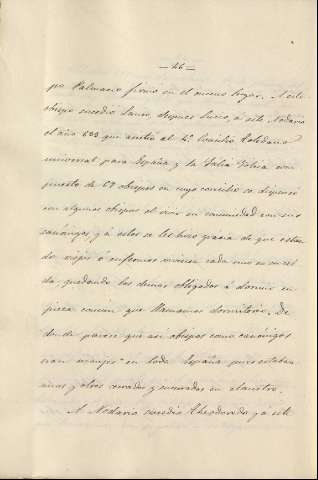 — 26 —
po Palmacio firmó en el mismo lugar. A este
obispo sucedió Lauro, despues Suero, a este Nodario
el año 633 que asistió al 4º Concilio Toledano
universal para España y la Galia Gótica com
puesto de 68 obispos en cuyo concilio se dispensó
con algunos obispos el vivir en comunidad con sus
canónigos y á estos se les hizo gracia de que estan
do viejos ó enfermos viviera cada uno en su cel
da, quedando los demas obligados á dormir en
pieza comun que llamamos dormitorio. De
donde parece que asi obispos como canónigos
eran monges en toda España pues estaban
unos y otros cerrados y encerrados en claustro.
A Nodario sucedió Theodoredo y á este